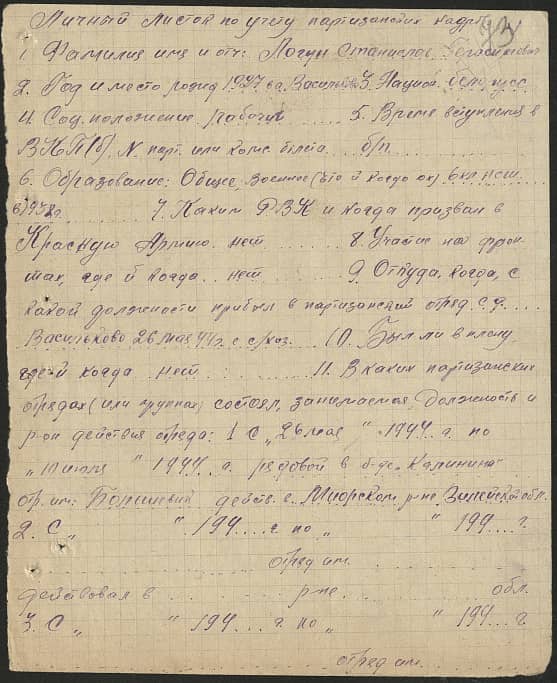 Личный листок по учету партизанских кадров
93
1. Фамилия имя и отч: Логун Станислав
2. Год и место рожд 1927 в д. Васильково 3. Национ. белорусс
4. Соц. положение рабочий 5. Время вступления в
ВКП(б), N парт. или комс. билета б/п
6. Образование: Общее, военное (что и когда ок) 6 кл нет
в 1938г 7. Каким РВК и когда призван в
Красную Армию. нет 8. Участие на фрон
тах, где и когда.. нет 9. Откуда, когда, с
какой должности прибыл в партизанский отряд. с д.
Васильково 26 мая 44г. с с/хоз. 10. Был ли в плену
где и когда нет 11. В каких партизанских
отрядах (или группах) состоял, занимаемая должность и
р-он действия отряда: 1 С „26 мая " 1944 г. по
„ июля " 1944 г. рядовой в б-де „Калинина"
отр. им: Большевик действ. в Миорском р-не обл.
2. С „ " 194 г. по „ " 194 г.
отряд им.
действовал в р-не обл.
3. С „ " 194 г. по „ " 194 г.
отряд им.